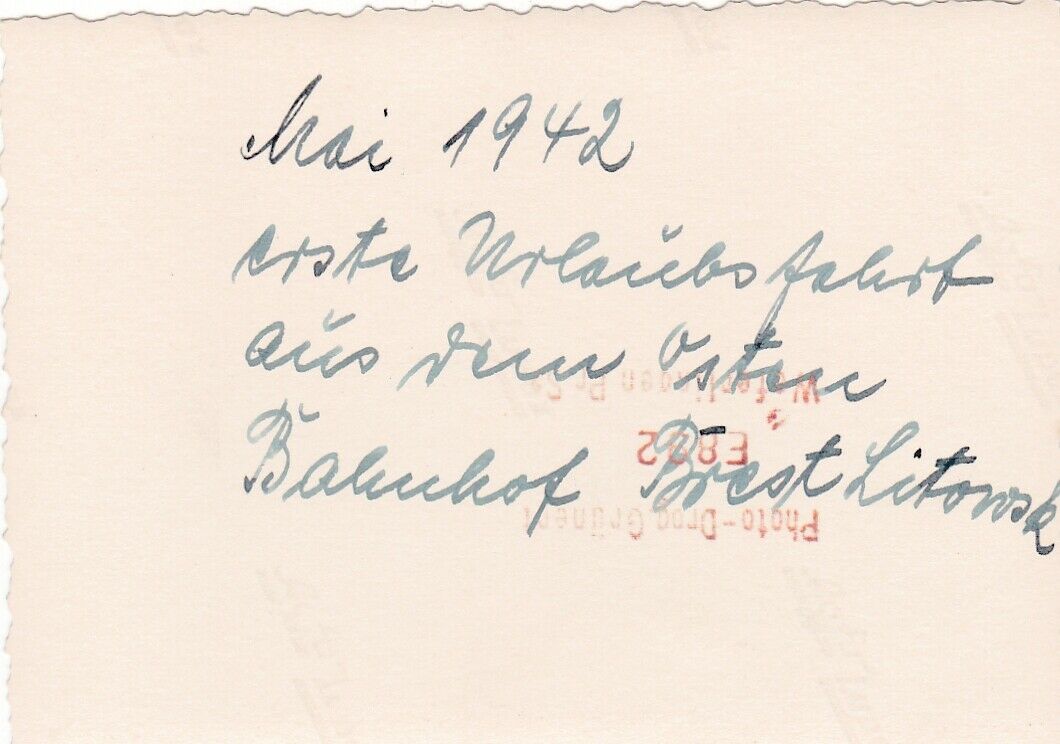 Mai 1942
erste Urlaubsfahrt
aus dem Osten
Bahnhof Brest Litowsk
Photo-Drog
E882